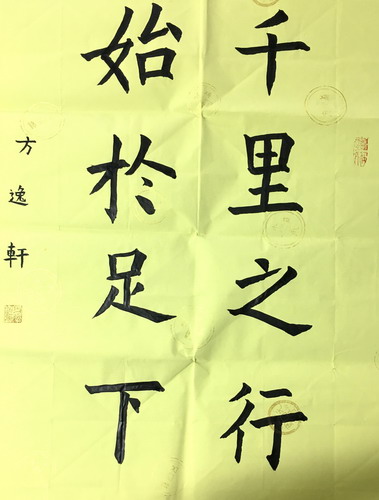 千里之行
始於足下
方逸軒